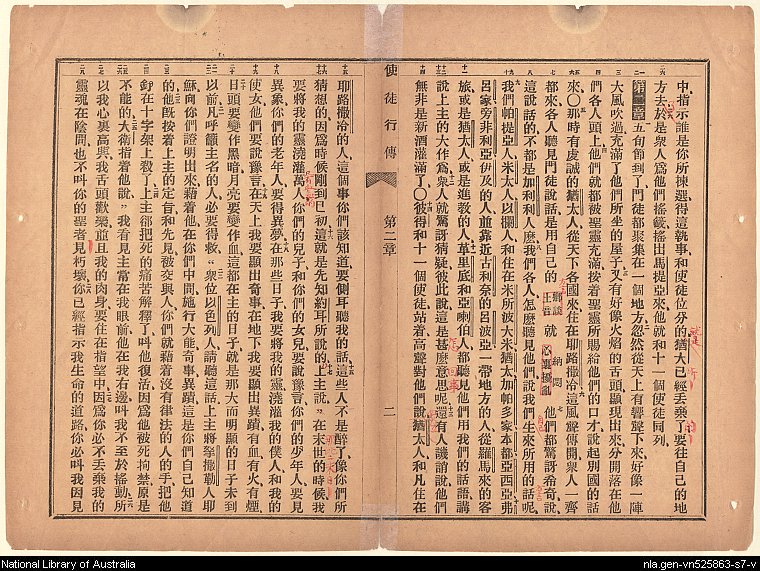 中指示誰是你所揀選得這執事和使徒位分的猶大已經丟棄了要往自己的地
方去於是衆人爲他們搖籤搖出馬提亞來他就和十一個使徒同列
第二章 五旬節到了門徒都聚集在一個地方忽然從天上有響聲下來好像一陣
大風吹過充滿了他們所坐的屋子又有好像火焰的舌頭顯現出來分開落在他
們各人頭上他們就都被聖靈充滿按着聖靈所賜給他們的口才說起別國的話
來○那時有虔誠的猶太人從天下各國來住在耶路撒冷這風聲傳開衆人一齊
都來各人聽見門徒說話是用自己的鄉談就納悶他們都驚訝希奇說
這說話的不都是加利利人麽我們各人怎麽聽見他們說我們生來所用的話呢
我們帕提亞人米太人以攔人和住在米所波大米猶太加帕多家本都亞西亞弗
呂家旁非利亞伊及的人並靠近古利奈的呂波亞一帶地方的人從羅馬來的客
旅或是猶太人或是進教的人革里底和亞喇伯人都聽見他們用我們的話語講
說上主的大作爲衆人就驚訝猜疑彼此說這是甚麽意思呢還有人譏誚說他們
無非是新酒灌滿了○彼得和十一個使徒站着高聲對他們說猶太人和凡住在
使徒行傳 第二章 二
耶路撒冷的人這個事你們該知道要側耳聽我的話這些人不是醉了像你們所
猜想的因爲時候剛到巳初這就是先知約耳所說的上主說在末世的時候我
要將我的靈澆灌萬人你們的兒子和你們的女兒要說豫言你們的少年人要見
異象你們的老年人要得異夢在那些日子我要將我的靈澆灌我的僕人和我的
使女他們要說豫言在天上我要顯出奇事在地下我要顯出異蹟有血有火有煙
日頭要變作黑暗月亮要變作血這都在主的日子就是那大而明顯的日子未到
以前凡呼籲主名的人必要得救衆位以色列人請聽這話上主將拏撒勒人耶
穌向你們證明出來藉着他在你們中間施行大能奇事異蹟這是你們自己知道
的他旣按着上主的定旨和先見被交與人你們就藉着沒有律法的人的手把他
釘在十字架上殺了上主卻把死的痛苦解釋了叫他復活因爲他被死拘禁原是
不能的大衛指着他說我看見主常在我眼前他在我右邊叫我不至於搖動所
以我心裏高興我舌頭歡樂並且我的肉身要住在指望中因爲你必不丟棄我的
靈魂在陰間也不叫你的聖者見朽壞你已經指示我生命的道路你必叫我因見
National Library of Australia
nla.gen-vn525863-s7-v